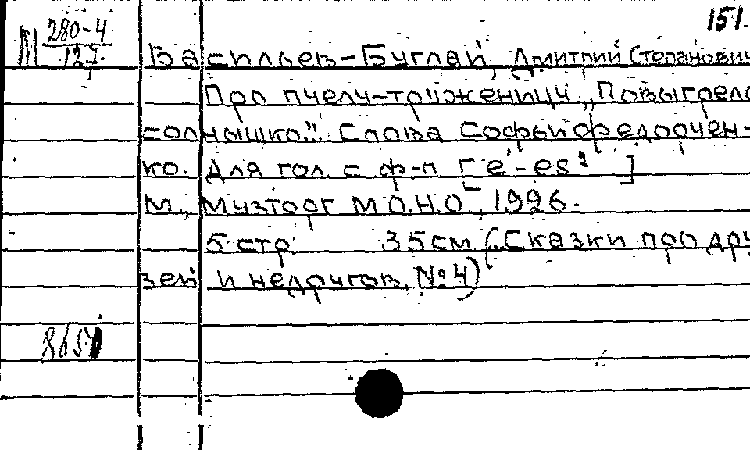 151.
М 280-4
127
Васильев-Буглай, Дмитрий Степанович
Про пчелу-труженицу. „Повыгрело
солнышко." Слова Софьи Федорчен-
ко. Для гол. с ф-п [e'-es²]
М., Музторг М.О.Н.О, 1926.
5 стр. 35 см. (Сказки про дру
зей и недругов, № 4)